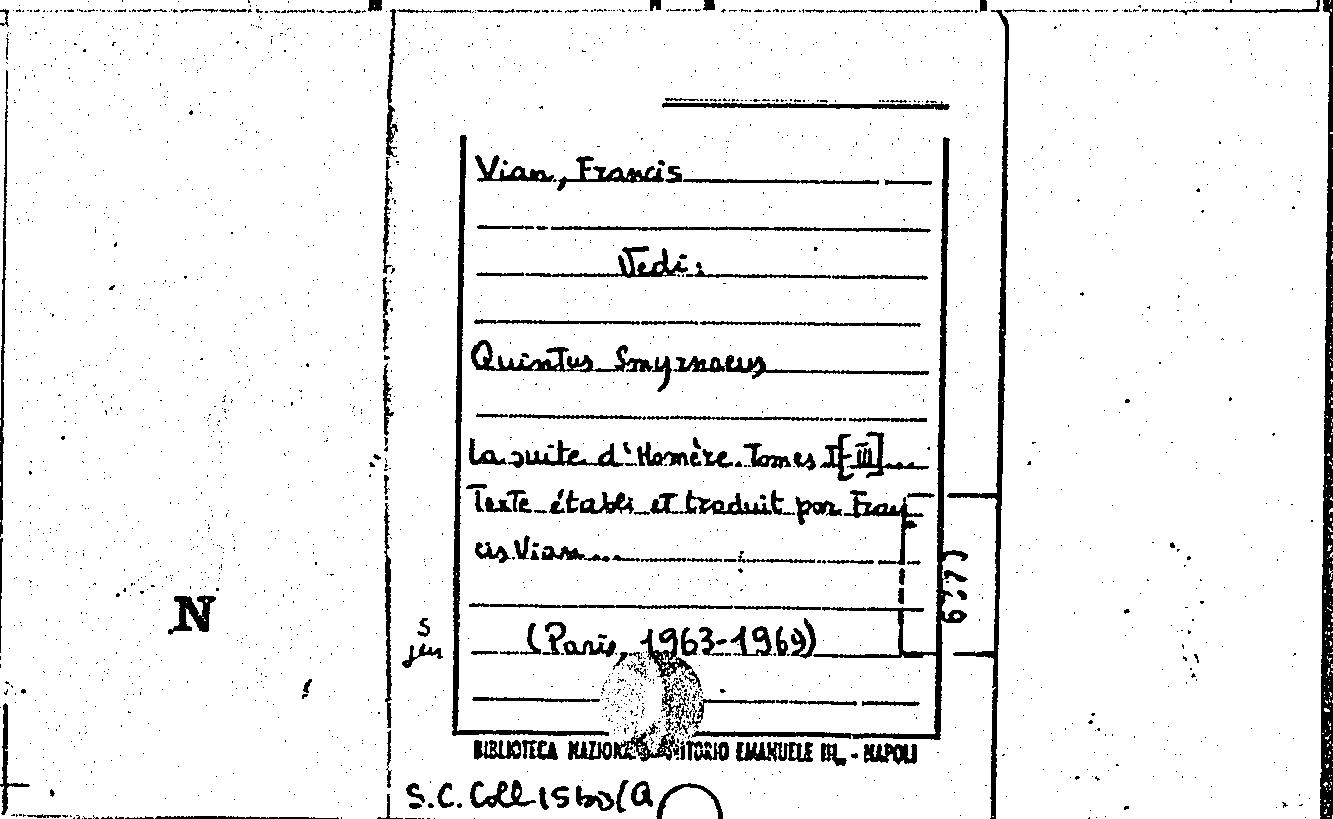 Vian, Francis
Vedi:
Quintus Smyrnaeus
La suite d'Homère. Tomes I[-III]...
Texte établi et traduit par Fran
cis Vian...
N
(Paris, 1963-1969)
BIBLIOTECA NAZION VITTORIO EMANUELE III. - NAPOLI
S.C. Coll